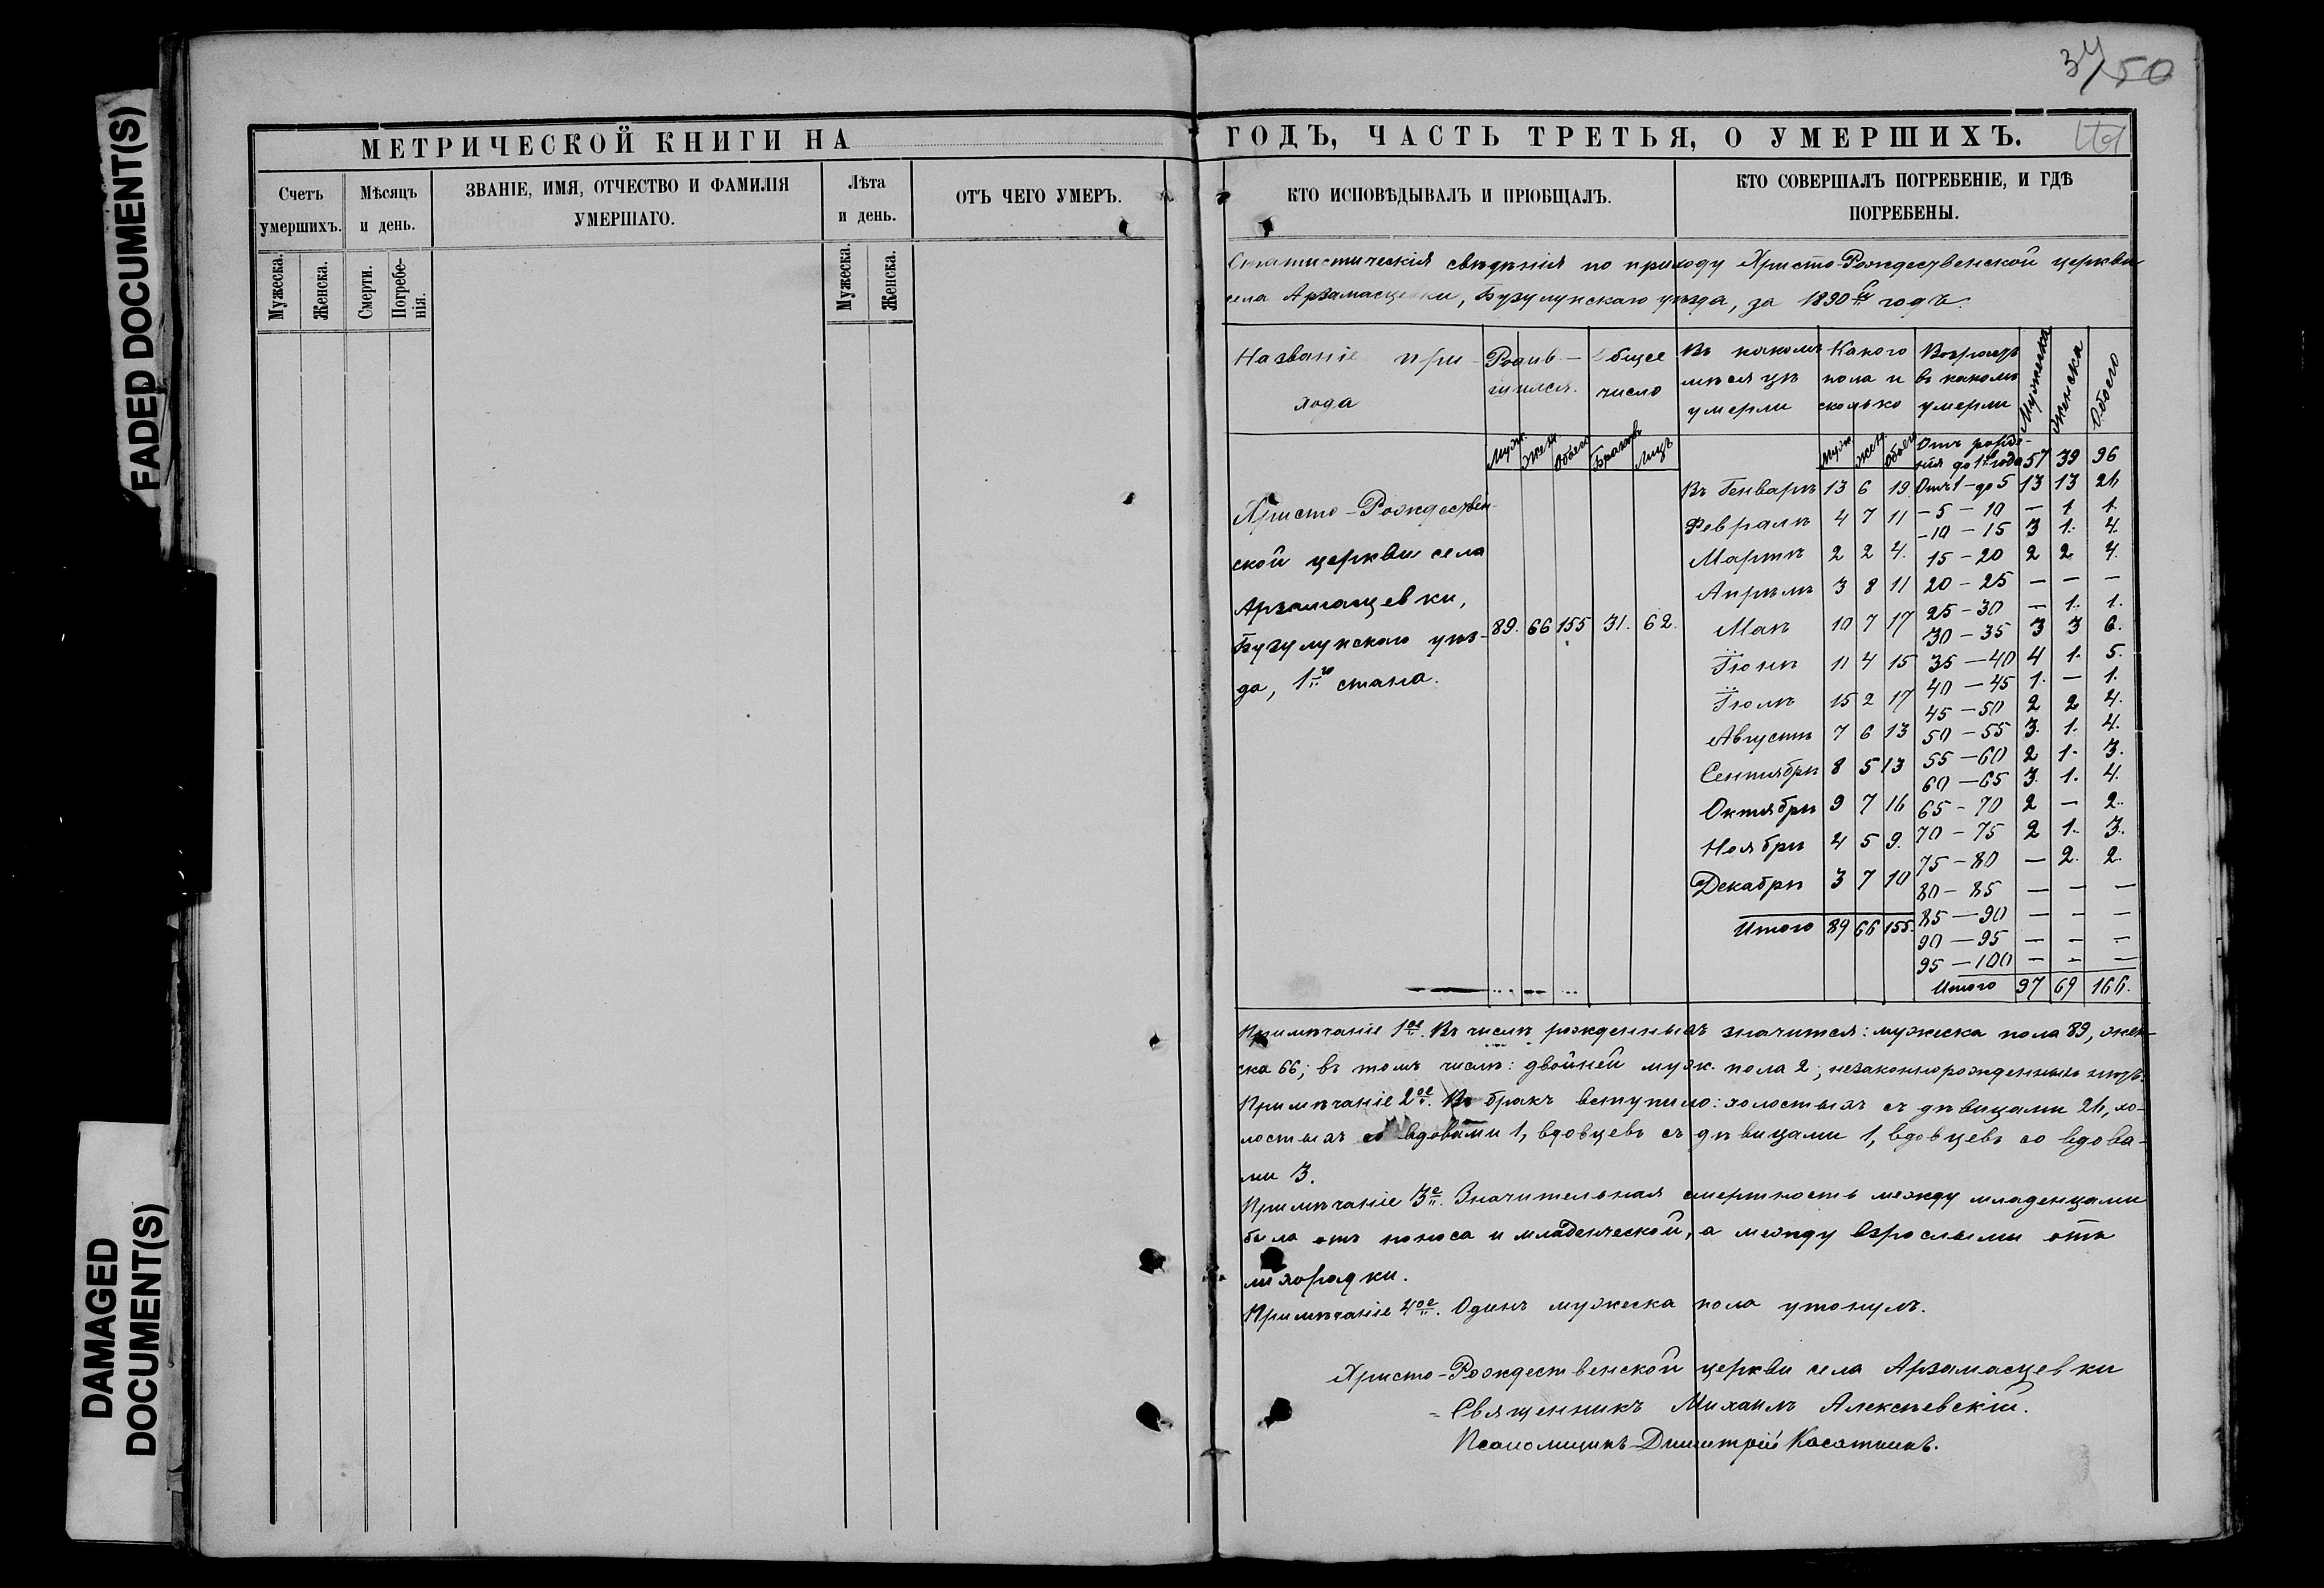 FADED DOCUMENT(S)
DAMAGED
DOCUMENT(S)
МЕТРИЧЕСКОЙ КНИГИ НА
Счетъ умершихъ.
Мѣсяцъ и день.
ЗВАНІЕ, ИМЯ, ОТЧЕСТВО И ФАМИЛІЯ
УМЕРШАГО.
Лѣта и день.
ОТЪ ЧЕГО УМЕРЪ.
Мужеска.
Женска.
Смерти.
Погребе-
нія.
Мужеска.
Женска.
34/50
ГОДЪ, ЧАСТЬ ТРЕТЬЯ, О УМЕРШИХЪ.
КТО ИСПОВѢДЫВАЛЪ И ПРІОБЩАЛЪ.
КТО СОВЕРШАЛЪ ПОГРЕБЕНІЕ, И ГДѢ
ПОГРЕБЕНЫ.
Статистическія свѣдѣнія по приходу Христо-Рождественской церкви
села Арзамасцевки, Бузулукскаго уѣзда, за 1890й годъ.
Названіе при-
хода
Родив-
шихся.
Общее
число
Въ какомъ
мѣсяцѣ
умерли
Какого
пола и
сколько
Возрастъ
въ какомъ
умерли
Мужеска
Женска
Обоего
Муж. Жен. Обоего Браковъ Лицъ
Муж. Жен. Обоего
Христо-Рождествен-
ской церкви села
Арзамасцевки,
Бузулукскаго уѣз-
да, 1го стана.
89. 66 155 31. 62.
Въ Генварѣ 13 6 19
Февралѣ 4 7 11
Мартѣ 2 2 4.
Апрѣлѣ 3 8 11
Маѣ 10 7 17
Іюнѣ 11 4 15
Іюлѣ 15 2 17
Августѣ 7 6 13
Сентябрѣ 8 5 13
Октябрѣ 9 7 16
Ноябрѣ 4 5 9.
Декабрѣ 3 7 10
Итого 89 66 155.
Отъ рожде-
нія до 1го года 57 39 96
Отъ 1 - до 5 13 13 26
- 5 - 10 — 1 1.
- 10 - 15 3 1. 4.
15 - 20 2 2 4.
20 - 25 — — —
25 - 30 — 1. 1.
30 - 35 3 3 6.
35 - 40 4 1. 5.
40 - 45 1. — 1.
45 - 50 2 2 4.
50 - 55 3. 1. 4.
55 - 60 2 1. 3.
60 - 65 3. 1. 4.
65 - 70 2 — 2.
70 - 75 2 1. 3.
75 - 80 — 2. 2.
80 - 85 — — —
85 - 90 — — —
90 - 95 — — —
95 - 100 — — —
Итого 97 69 166.
Примѣчаніе 1ое. Въ числѣ рожденныхъ значится: мужеска пола 89, жен-
ска 66; въ томъ числѣ: двойней муж. пола 2; незаконнорожденныхъ нѣтъ.
Примѣчаніе 2ое. Въ бракъ вступило: холостыхъ съ дѣвицами 26, хо-
лостыхъ со вдовами 1, вдовцевъ съ дѣвицами 1, вдовцевъ со вдова-
ми 3.
Примѣчаніе 3е. Значительная смертность между младенцами
была отъ поноса и младенческой, а между взрослыми отъ
лихорадки.
Примѣчаніе 4ое. Одинъ мужеска пола утонулъ.
Христо-Рождественской церкви села Арзамасцевки
Священникъ Михаилъ Алексѣевскій.
Псаломщикъ Димитрій Касаткинъ.